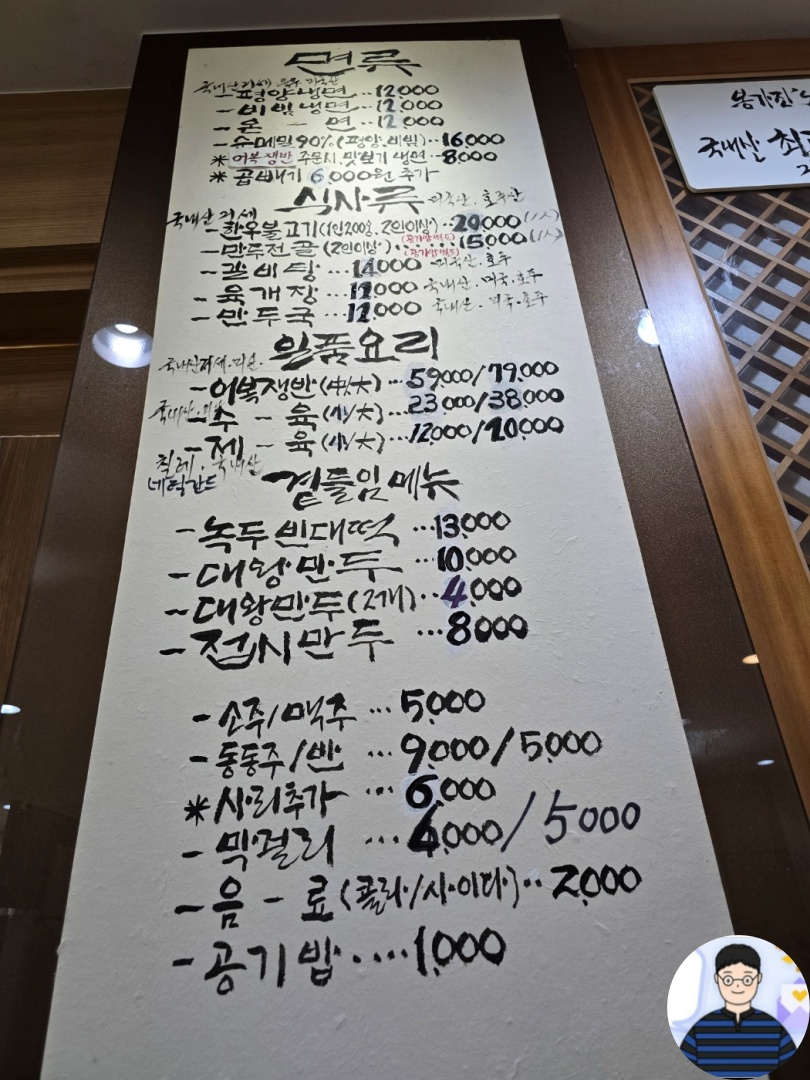 면류
국내산
-평양냉면..12,000
-비빔냉면..12,000
-온 - 면..12,000
-순메밀90%(평양.비빔)..16,000
*어복쟁반 주문시,맛보기 냉면..8,000
*곱빼기 6,000원 추가
식사류 미국산.호주산
국내산 거세
-한우불고기(1인200g,2인이상)..20,000(1人)
-만두전골(2인이상)...15,000(1人)
(공기밥별도)
-갈비탕...14,000 미국산.호주
-육개장...11,000 국내산.미국.호주
-만두국...11,000 국내산.미국.호주
일품요리
-어복쟁반(中/大)...59,000/79,000
국내산
-수 - 육(小/大)...23,000/38,000
-제 - 육(小/大)...12,000/20,000
칠레.국내산
네덜란드
곁들임메뉴
-녹두빈대떡...13,000
-대왕만두...10,000
-대왕만두(2개)..4,000
-접시만두...8,000
-소주/맥주...5,000
-동동주/반...9,000/5,000
*사리추가...6,000
-막걸리...4,000/5000
-음 - 료(콜라/사이다)..2,000
-공기밥....1,000
봉가진
국내산